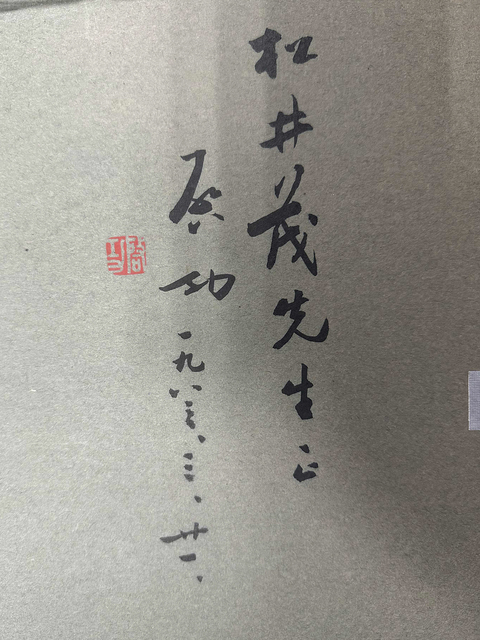 松井茂先生正
启功
一九八三、三、廿一、
启功